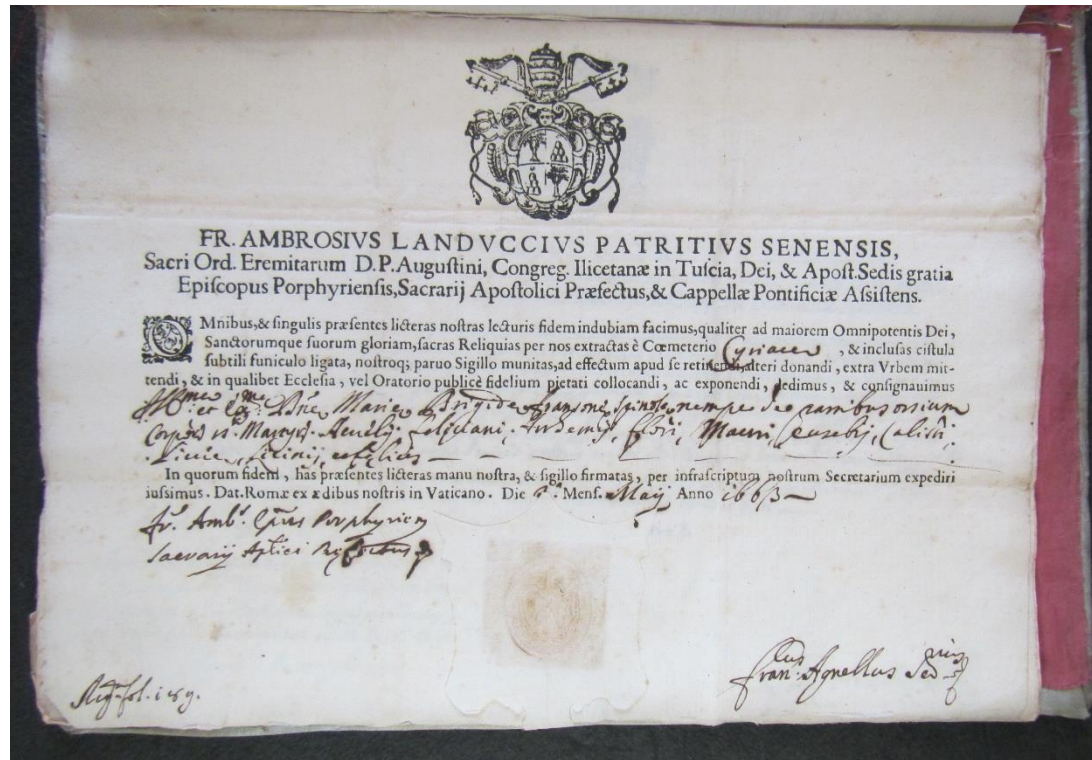 FR. AMBROSIVS LANDVCCIVS PATRITIVS SENENSIS,
Sacri Ord. Eremitarum D.P.Augustini, Congreg. Ilicetanæ in Tuscia, Dei, & Apost.Sedis gratia
Episcopus Porphyriensis,Sacrarij Apostolici Præfectus,& Cappellæ Pontificiæ Assistens.
OMnibus,& singulis præsentes licteras nostras lecturis fidem indubiam facimus,qualiter ad maiorem Omnipotentis Dei,
Sanctorumque suorum gloriam,sacras Reliquias per nos extractas è Cœmeterio Cyriacæ , & inclusas cistula
subtili funiculo ligata, nostroq; paruo Sigillo munitas,ad effectum apud se retinendi,alteri donandi, extra Vrbem mit-
tendi, & in qualibet Ecclesia, vel Oratorio publicè fidelium pietati collocandi, ac exponendi, dedimus, & consignauimus
et Marie Brigide Spinole nempe de ossium
Martyr. Flori, Mauri, Eusebij, Calisti
In quorum fidem, has præsentes licteras manu nostra, & sigillo firmatas, per infrascriptum nostrum Secretarium expediri
iussimus. Dat.Romæ ex ædibus nostris in Vaticano. Die Mens. Maij Anno 1663
fr. Amb. Porphyrien
Sacrarij
Fran. Agnellus
Reg. fol. 189.